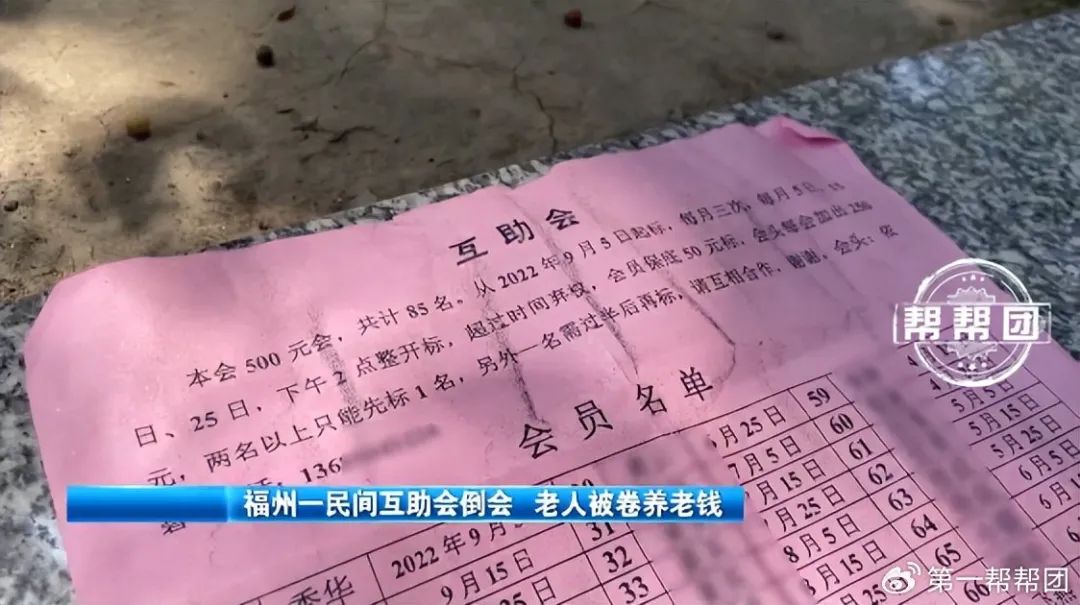 互助会
本会500元会，共计85名。从2022年9月5日起标，每月三次，每月5日、15
日、25日，下午2点整开标，超过时间弃权，会员保底50元标，会头每会加出250
元，两名以上只能先标1名，另外一名需过半后再标，请互相合作，谢谢。会头：
136
会员名单
香华
2022年9月
9月15日
31
32
33
6月25日
7月5日
7月15日
8月5日
8月15日
59
60
61
62
63
64
65
66
5月5日
5月15日
5月25日
6月5日
帮帮团
福州一民间互助会倒会 老人被卷养老钱
第一帮帮团